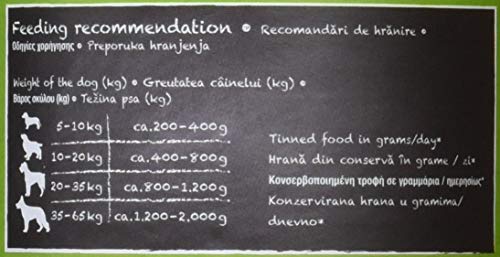 Feeding recommendation • Recomandări de hrănire •
Οδηγίες χορήγησης • Preporuka hranjenja
Weight of the dog (kg) • Greutatea câinelui (kg) •
Βάρος σκύλου (kg) • Težina psa (kg)
5-10kg ca.200-400g
10-20kg ca.400-800g
20-35kg ca.800-1.200g
35-65kg ca.1.200-2.000g
Tinned food in grams/day*
Hrană din conservă în grame / zi*
Κονσερβοποιημένη τροφή σε γραμμάρια / ημερησίως*
Konzervirana hrana u gramima/
dnevno*